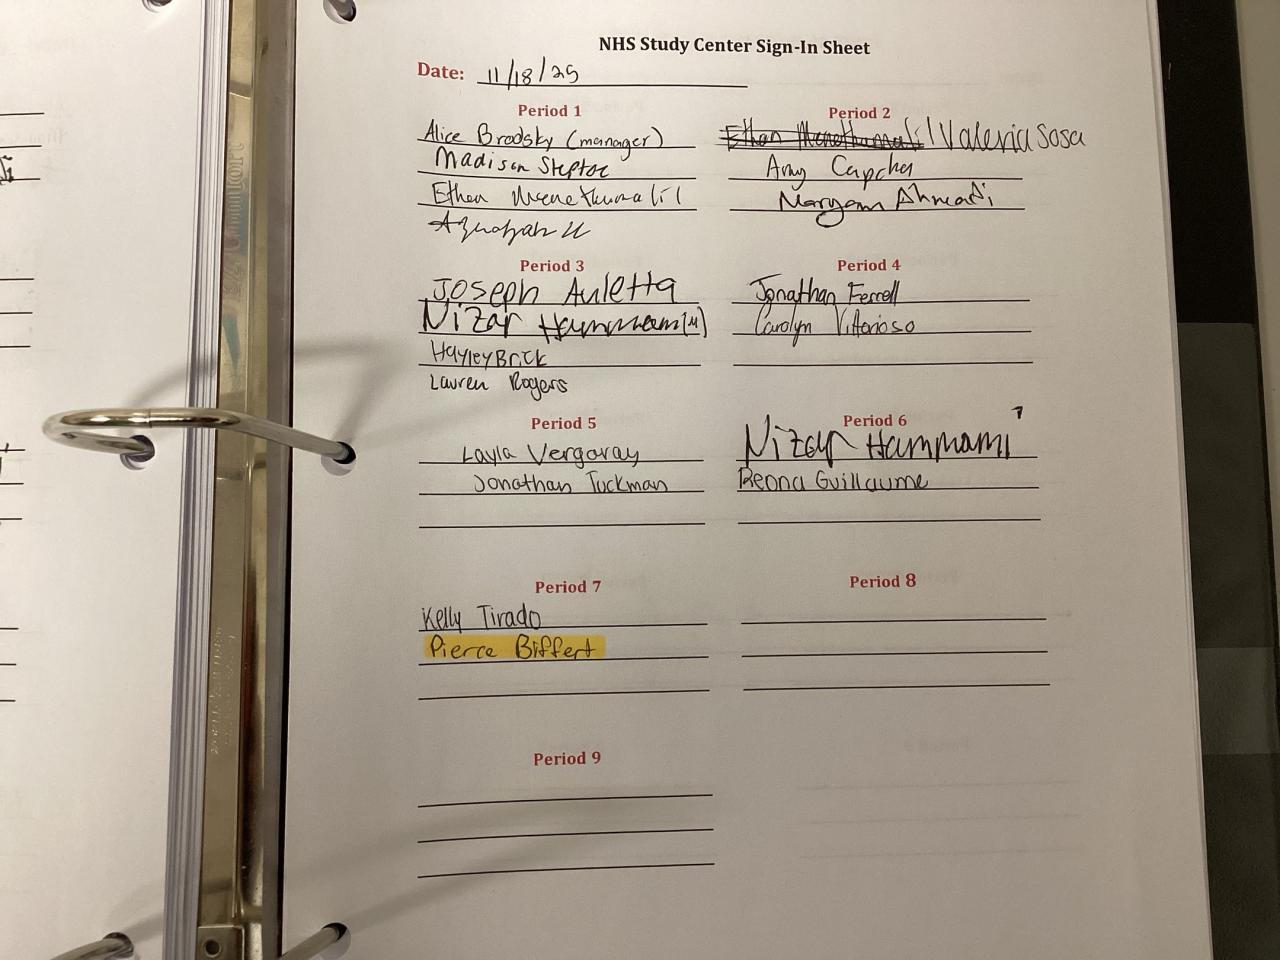 NHS Study Center Sign-In Sheet
Date: 11/18/25
Period 1
Alice Brodsky (manager)
Madison Steptoe
Ethan Menethumalil
Period 2
Ethan Valeria Sosa
Amy Capcha
Maryam Ahmadi
Period 3
Joseph Auletta
Nizar Hammami (M)
Hayley Brick
Lauren Rogers
Period 4
Jonathan Ferrell
Carolyn Vittorioso
Period 5
Layla Vergaray
Jonathan Tuckman
Period 6
Nizar Hammami
Reona Guillaume
Period 7
Kelly Tirado
Pierce Biffert
Period 8
Period 9